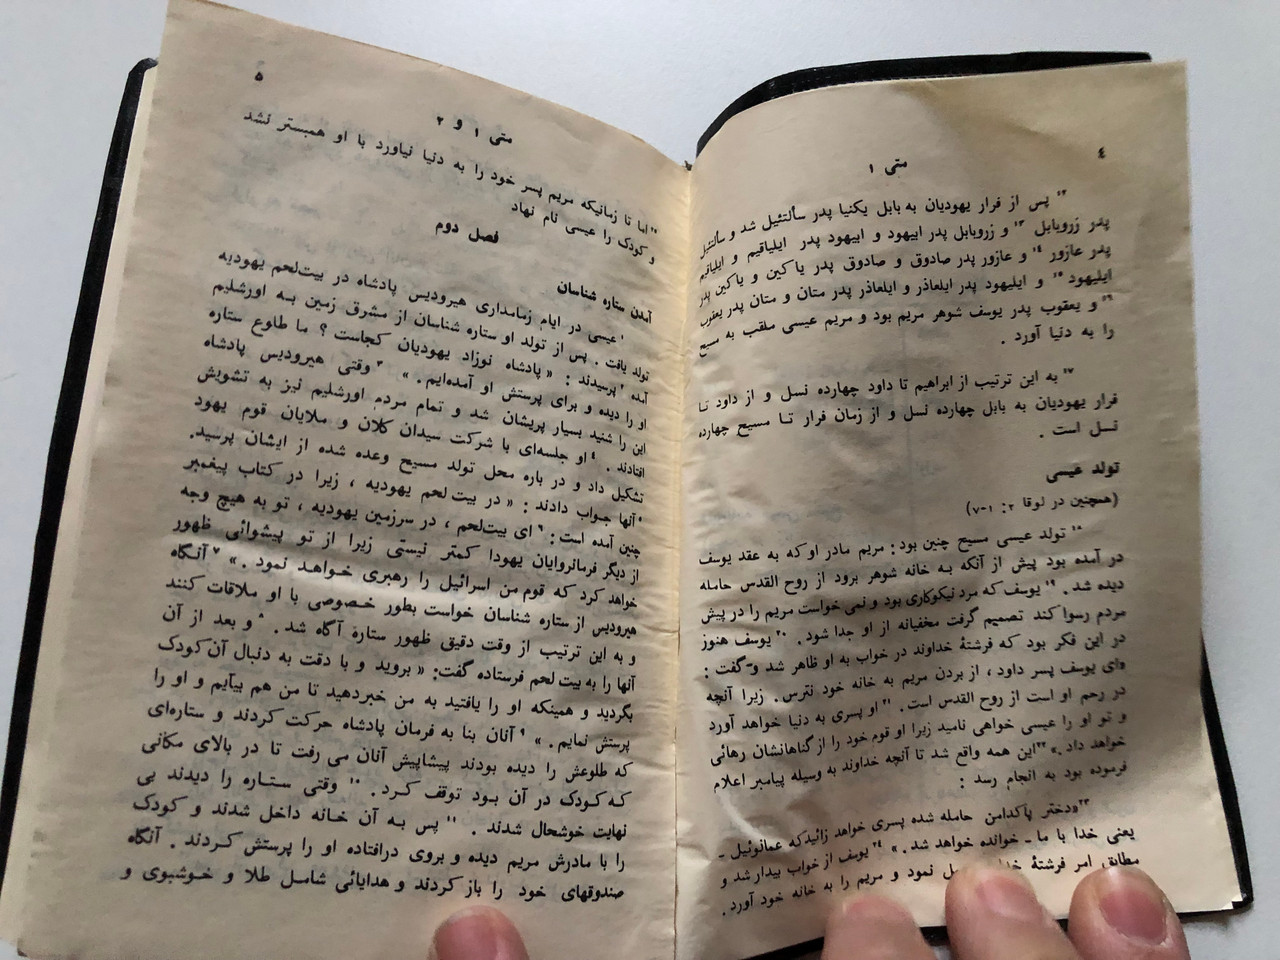 ٤
متی ۱
۱۲ پس از فرار یهودیان به بابل یکنیا پدر سألتئیل شد و سألتئیل
پدر زروبابل ۱۳ و زروبابل پدر ابیهود و ابیهود پدر ایلیاقیم و ایلیاقیم
پدر عازور ۱۴ و عازور پدر صادوق و صادوق پدر یاکین و یاکین پدر
ایلیهود ۱۵ و ایلیهود پدر ایلعاذر و ایلعاذر پدر متان و متان پدر یعقوب
۱۶ و یعقوب پدر یوسف شوهر مریم بود و مریم عیسی ملقب به مسیح
را به دنیا آورد .
۱۷ به این ترتیب از ابراهیم تا داود چهارده نسل و از داود تا
فرار یهودیان به بابل چهارده نسل و از زمان فرار تا مسیح چهارده
نسل است .
تولد عیسی
(همچنین در لوقا ۲: ۱-۷)
۱۸ تولد عیسی مسیح چنین بود: مریم مادر او که به عقد یوسف
در آمده بود پیش از آنکه به خانه شوهر برود از روح القدس حامله
دیده شد . ۱۹ یوسف که مرد نیکوکاری بود و نمی خواست مریم را در پیش
مردم رسوا کند تصمیم گرفت مخفیانه از او جدا شود . ۲۰ یوسف هنوز
در این فکر بود که فرشتهٔ خداوند در خواب به او ظاهر شد و گفت :
«ای یوسف پسر داود ، از بردن مریم به خانه خود نترس. زیرا آنچه
در رحم او است از روح القدس است . ۲۱ او پسری به دنیا خواهد آورد
و تو او را عیسی خواهی نامید زیرا او قوم خود را از گناهانشان رهائی
خواهد داد.» ۲۲ این همه واقع شد تا آنچه خداوند به وسیله پیامبر اعلام
فرموده بود به انجام رسد :
۲۳ «دختر پاکدامن حامله شده پسری خواهد زائید که عمانوئیل ـ
یعنی خدا با ما ـ خوانده خواهد شد .» ۲۴ یوسف از خواب بیدار شد و
مطابق امر فرشتهٔ نمود و مریم را به خانه خود آورد .
۵
متی ۱ و ۲
۲۵ اما تا زمانیکه مریم پسر خود را به دنیا نیاورد با او همبستر نشد
و کودک را عیسی نام نهاد
فصل دوم
آمدن ستاره شناسان
۱ عیسی در ایام زمامداری هیرودیس پادشاه در بیت‌لحم یهودیه
تولد یافت . پس از تولد او ستاره شناسان از مشرق زمین به اورشلیم
آمده ۲ پرسیدند : « پادشاه نوزاد یهودیان کجاست ؟ ما طلوع ستاره
او را دیده و برای پرستش او آمده‌ایم . » ۳ وقتی هیرودیس پادشاه
این را شنید بسیار پریشان شد و تمام مردم اورشلیم نیز به تشویش
افتادند . ۴ او جلسه‌ای با شرکت سیدان کلان و ملایان قوم یهود
تشکیل داد و در باره محل تولد مسیح وعده شده از ایشان پرسید.
۵ آنها جواب دادند : « در بیت لحم یهودیه ، زیرا در کتاب پیغمبر
چنین آمده است : ۶ ای بیت‌لحم ، در سرزمین یهودیه ، تو به هیچ وجه
از دیگر فرمانروایان یهودا کمتر نیستی زیرا از تو پیشوائی ظهور
خواهد کرد که قوم من اسرائیل را رهبری خواهد نمود . » ۷ آنگاه
هیرودیس از ستاره شناسان خواست بطور خصوصی با او ملاقات کنند
و به این ترتیب از وقت دقیق ظهور ستاره آگاه شد . ۸ و بعد از آن
آنها را به بیت لحم فرستاده گفت: « بروید و با دقت به دنبال آن کودک
بگردید و همینکه او را یافتید به من خبر دهید تا من هم بیآیم و او را
پرستش نمایم . » ۹ آنان بنا به فرمان پادشاه حرکت کردند و ستاره‌ای
که طلوعش را دیده بودند پیشاپیش آنان می رفت تا در بالای مکانی
که کودک در آن بود توقف کرد . ۱۰ وقتی ستاره را دیدند بی
نهایت خوشحال شدند . ۱۱ پس به آن خانه داخل شدند و کودک
را با مادرش مریم دیده و بروی درافتاده او را پرستش کردند . آنگاه
صندوقهای خود را باز کردند و هدایائی شامل طلا و خوشبوی و